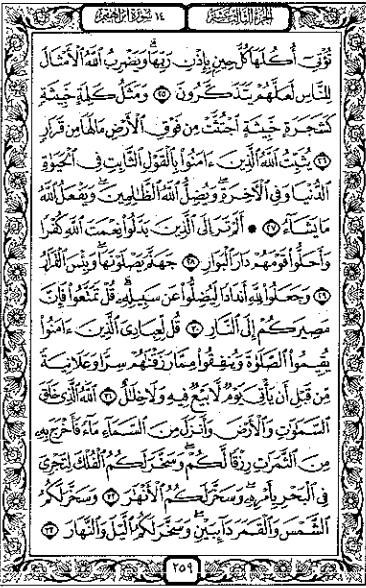 الجزء الثالث عشر ١٤ سورة ابراهيم
تُؤْتِىٓ أُكُلَهَا كُلَّ حِينٍۭ بِإِذْنِ رَبِّهَا ۗ وَيَضْرِبُ ٱللَّهُ ٱلْأَمْثَالَ
لِلنَّاسِ لَعَلَّهُمْ يَتَذَكَّرُونَ ٢٥ وَمَثَلُ كَلِمَةٍ خَبِيثَةٍ
كَشَجَرَةٍ خَبِيثَةٍ ٱجْتُثَّتْ مِن فَوْقِ ٱلْأَرْضِ مَا لَهَا مِن قَرَارٍ
٢٦ يُثَبِّتُ ٱللَّهُ ٱلَّذِينَ ءَامَنُوا۟ بِٱلْقَوْلِ ٱلثَّابِتِ فِى ٱلْحَيَوٰةِ
ٱلدُّنْيَا وَفِى ٱلْءَاخِرَةِ ۖ وَيُضِلُّ ٱللَّهُ ٱلظَّـٰلِمِينَ ۚ وَيَفْعَلُ ٱللَّهُ
مَا يَشَآءُ ٢٧ ۞ أَلَمْ تَرَ إِلَى ٱلَّذِينَ بَدَّلُوا۟ نِعْمَتَ ٱللَّهِ كُفْرًا
وَأَحَلُّوا۟ قَوْمَهُمْ دَارَ ٱلْبَوَارِ ٢٨ جَهَنَّمَ يَصْلَوْنَهَا ۖ وَبِئْسَ ٱلْقَرَارُ
٢٩ وَجَعَلُوا۟ لِلَّهِ أَندَادًا لِّيُضِلُّوا۟ عَن سَبِيلِهِۦ ۗ قُلْ تَمَتَّعُوا۟ فَإِنَّ
مَصِيرَكُمْ إِلَى ٱلنَّارِ ٣٠ قُل لِّعِبَادِىَ ٱلَّذِينَ ءَامَنُوا۟
يُقِيمُوا۟ ٱلصَّلَوٰةَ وَيُنفِقُوا۟ مِمَّا رَزَقْنَـٰهُمْ سِرًّا وَعَلَانِيَةً
مِّن قَبْلِ أَن يَأْتِىَ يَوْمٌ لَّا بَيْعٌ فِيهِ وَلَا خِلَـٰلٌ ٣١ ٱللَّهُ ٱلَّذِى خَلَقَ
ٱلسَّمَـٰوَٰتِ وَٱلْأَرْضَ وَأَنزَلَ مِنَ ٱلسَّمَآءِ مَآءً فَأَخْرَجَ بِهِۦ
مِنَ ٱلثَّمَرَٰتِ رِزْقًا لَّكُمْ ۖ وَسَخَّرَ لَكُمُ ٱلْفُلْكَ لِتَجْرِىَ
فِى ٱلْبَحْرِ بِأَمْرِهِۦ ۖ وَسَخَّرَ لَكُمُ ٱلْأَنْهَـٰرَ ٣٢ وَسَخَّرَ لَكُمُ
ٱلشَّمْسَ وَٱلْقَمَرَ دَآئِبَيْنِ ۖ وَسَخَّرَ لَكُمُ ٱلَّيْلَ وَٱلنَّهَارَ ٣٣
٢٥٩